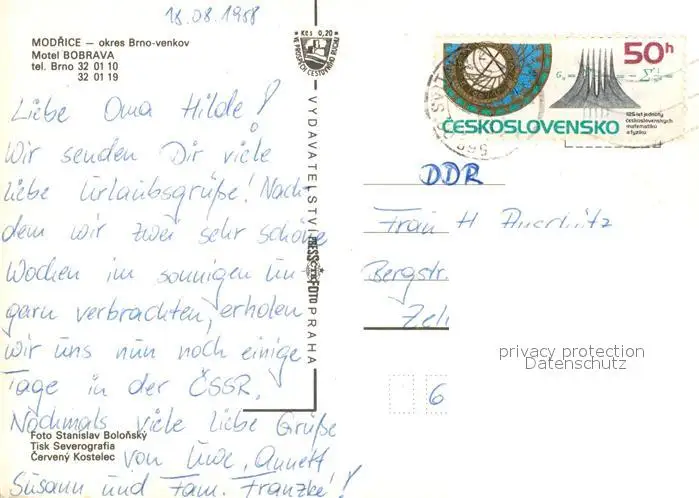 18.08.1988
MODŘICE — okres Brno-venkov
Motel BOBRAVA
tel. Brno 32 01 10
32 01 19
Liebe Oma Hilde!
Wir senden Dir viele
liebe Urlaubsgrüße! Nach-
dem wir zwei sehr schöne
Wochen im sonnigen Un-
garn verbrachten, erholen
wir uns nun noch einige
Tage in der ČSSR.
Nochmals viele liebe Grüße
von Uwe, Annett
Susann und Fam. Franzke!
Foto Stanislav Boloňský
Tisk Severografia
Červený Kostelec
Kčs 0,20
VE PROSPĚCH CESTOVNÍHO RUCHU
VYDAVATELSTVÍ PRESSFOTO PRAHA
50h
ČESKOSLOVENSKO
125 let jednoty
československých
matematiků
a fyziků
DDR
Frau H
Bergstr.
Zeh
6
privacy protection
Datenschutz